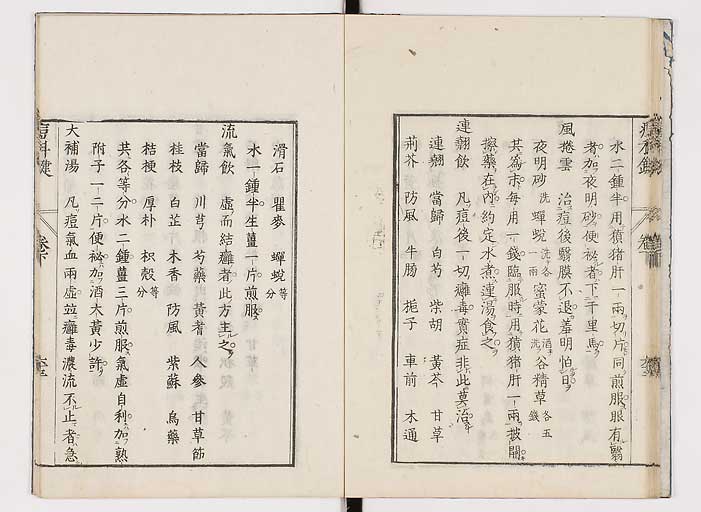 水二鍾半用獖猪肝一兩切片同煎服眼有翳
者加夜明砂便祕者下千里馬
風捲雲　治痘後翳膜不退羞明怕日
夜明砂洗　蟬蛻洗各一兩　蜜蒙花酒洗　谷精草各五錢
其為末每用一錢臨服時用獖猪肝一兩披開
擦藥在內約定水煮連湯食之
連翹飲　凡痘後一切癰毒實症非此莫治
連翹　當歸　白芍　柴胡　黃芩　甘草
荊芥　防風　牛蒡　梔子　車前　木通
滑石　瞿麥　蟬蛻等分
水一鍾半生薑一片煎服
流氣飲　虛而結癰者此方主之
當歸　川芎　芍藥　黃耆　人參　甘草節
桂枝　白芷　木香　防風　紫蘇　烏藥
桔梗　厚朴　枳殼等分
共各等分水二鍾薑三片煎服氣虛自利加熟
附子一二片便祕加酒大黃少許
大補湯　凡痘氣血兩虛並癰毒濃流不止者急
卷下